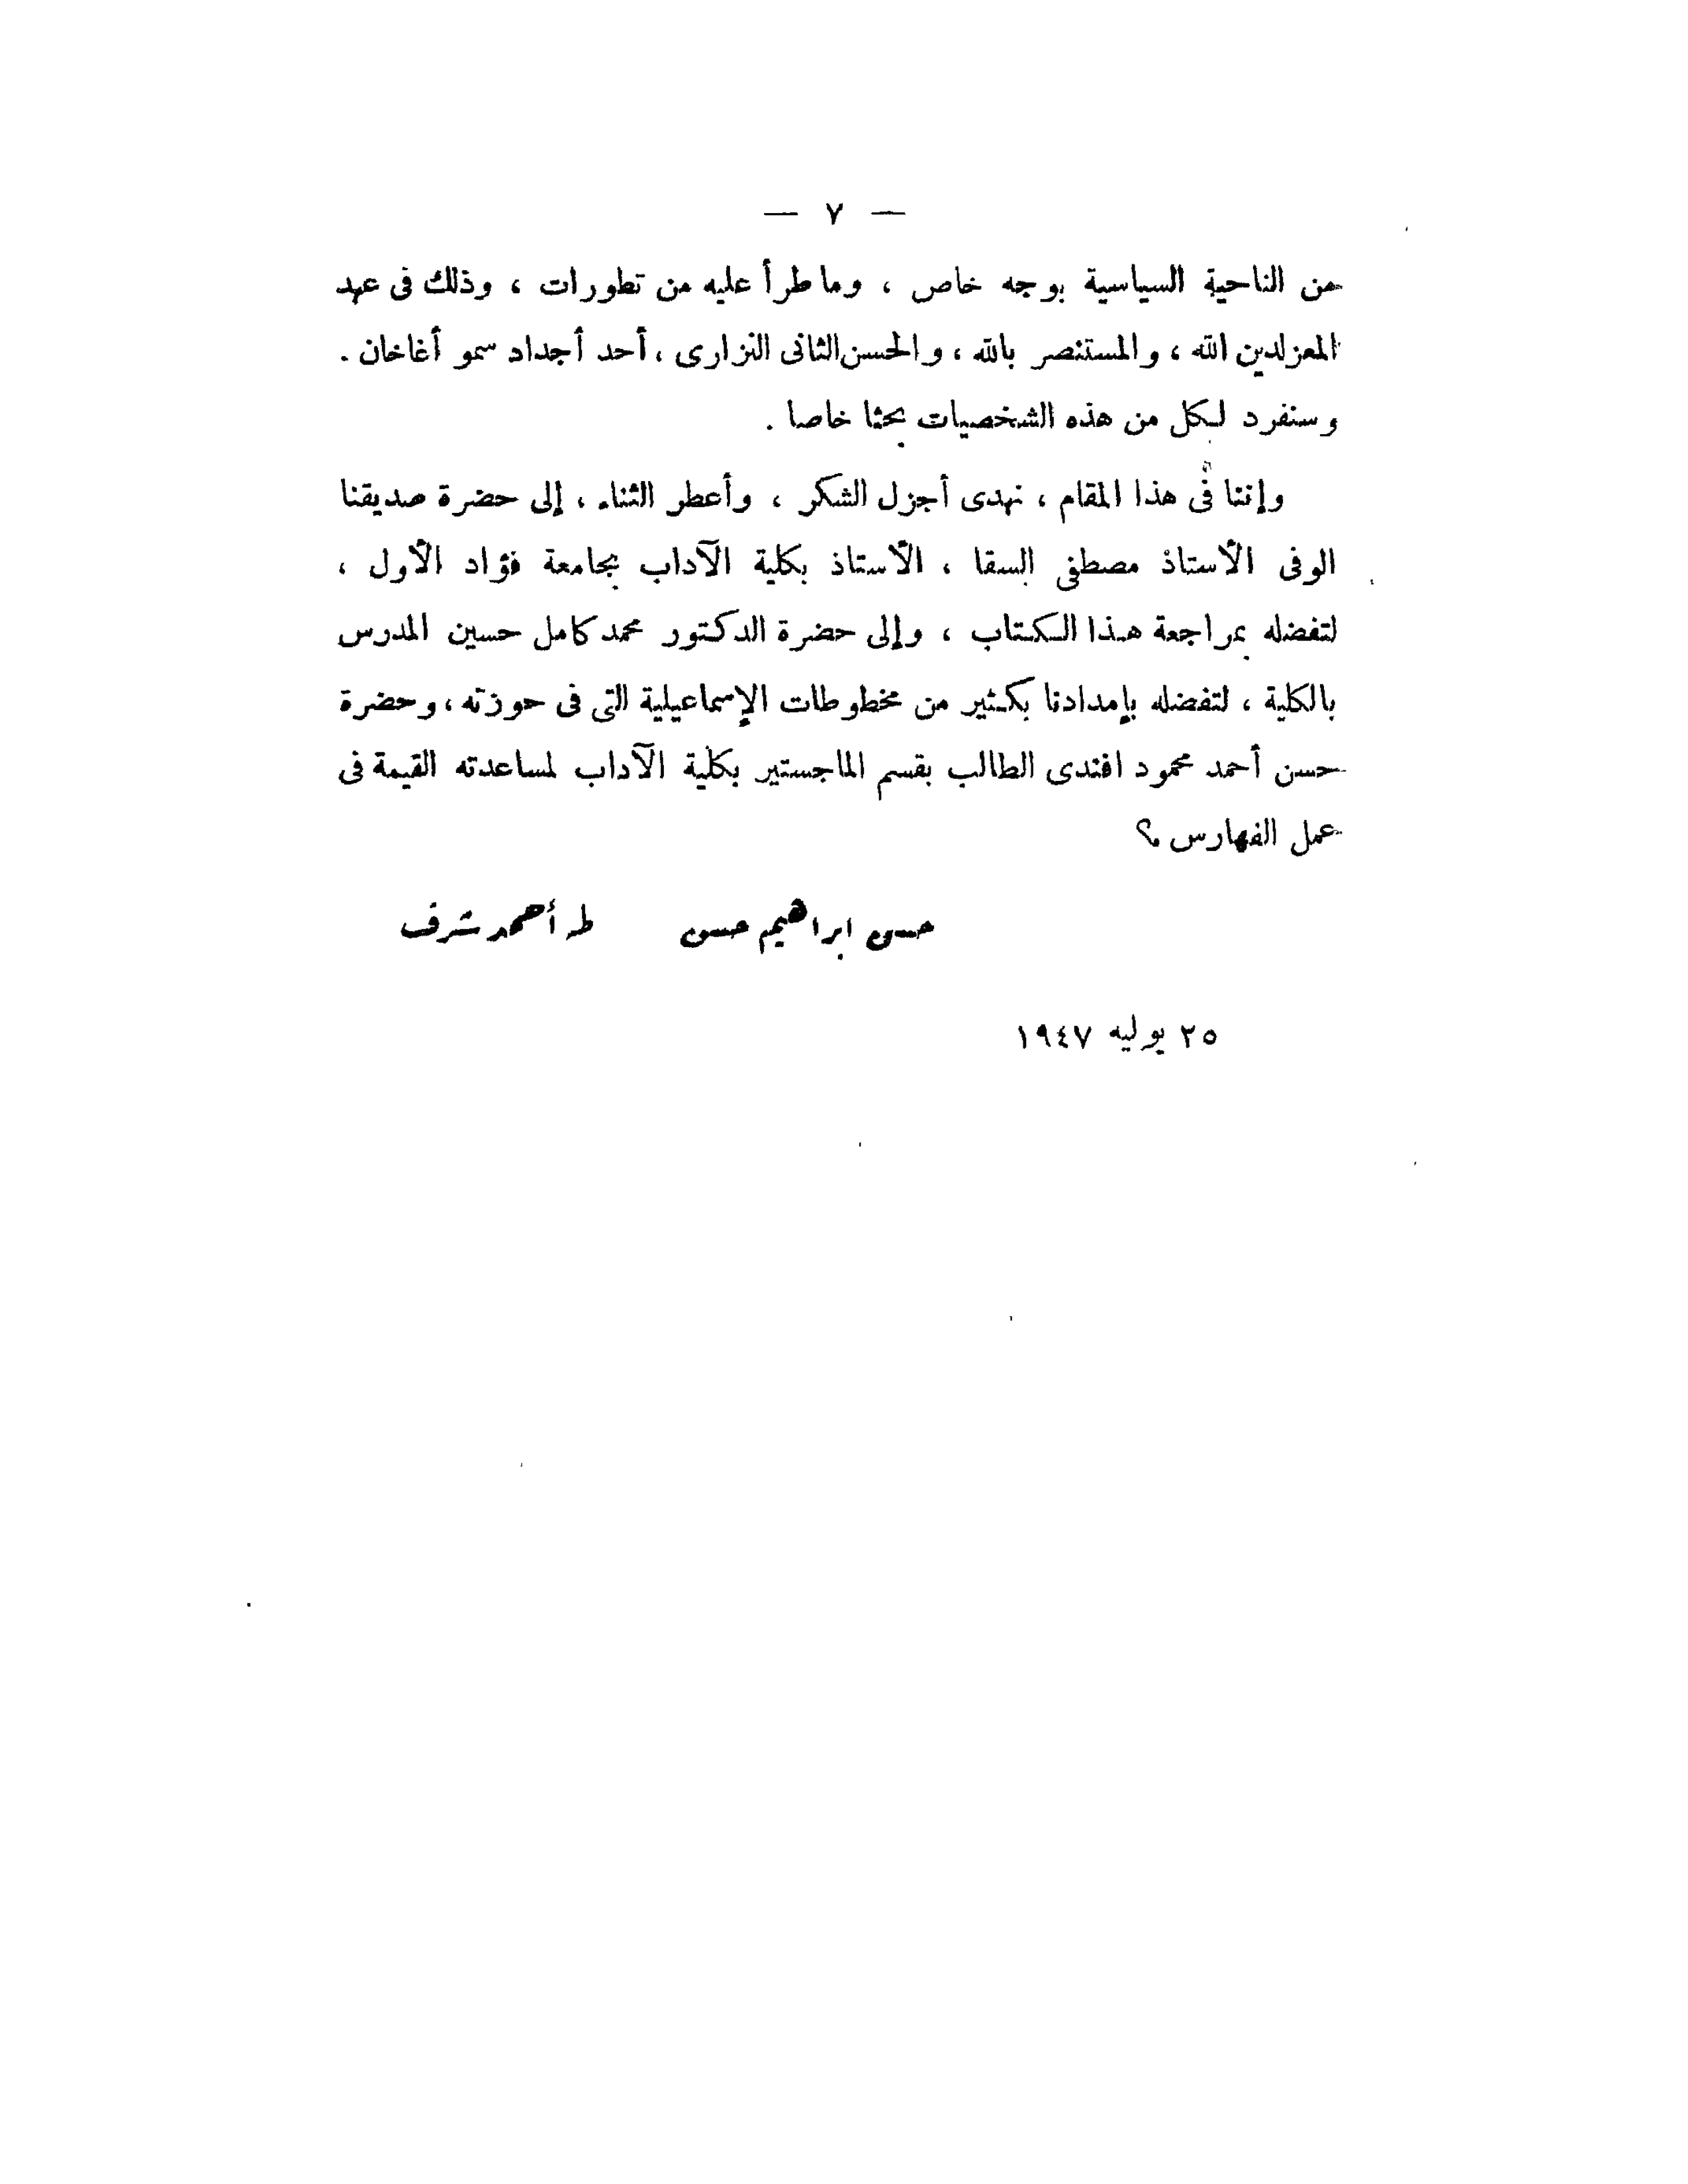 — ٧ —
من الناحية السياسية بوجه خاص ، وما طرأ عليه من تطورات ، وذلك فى عهد
المعز لدين الله ، والمستنصر بالله ، والحسن الثانى النزارى ، أحد أجداد سمو أغاخان .
وسنفرد لكل من هذه الشخصيات بحثا خاصا .
وإننا فى هذا المقام ، نهدى أجزل الشكر ، وأعطر الثناء ، إلى حضرة صديقنا
الوفى الأستاذ مصطفى السقا ، الأستاذ بكلية الآداب بجامعة فؤاد الأول ،
لتفضله بمراجعة هذا الكتاب ، وإلى حضرة الدكتور محمد كامل حسين المدرس
بالكلية ، لتفضله بإمدادنا بكثير من مخطوطات الإسماعيلية التى فى حوزته ، وحضرة
حسن أحمد محمود افندى الطالب بقسم الماجستير بكلية الآداب لمساعدته القيمة فى
عمل الفهارس ؟
حسن ابراهيم حسن طه أحمد شرف
٢٥ يوليه ١٩٤٧